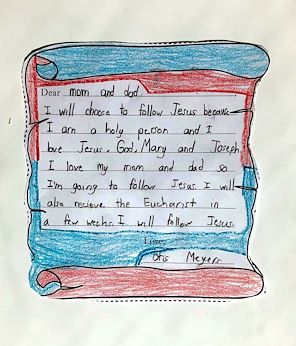 Dear mom and dad,
I will choose to follow Jesus because
I am a holy person and I
love Jesus, God, Mary and Joseph
I love my mom and dad so
I'm going to follow Jesus. I will
also recieve the Eucharist in
a few weeks. I will follow Jesus.
Love,
Otis Meyers